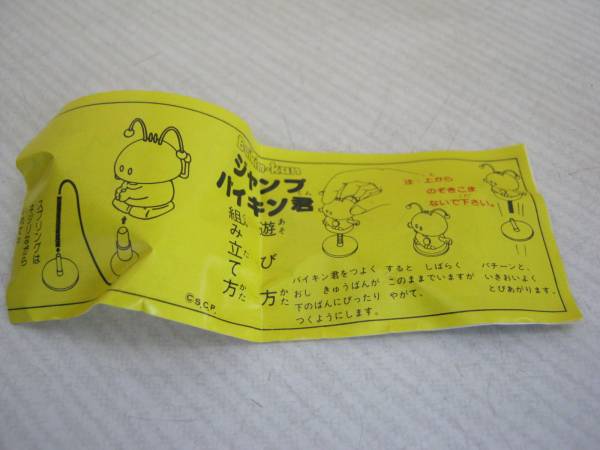 Baikin-kun
ジャンプ
バイキン君
遊び方
組み立て方
スプリングは
©S.C.P.
は 上から
のぞきこま
ないで下さい。
バイキン君をつよく
おし きゅうばんが
下のばんにぴったり
つくようにします。
すると しばらく
このままでいますが
やがて、
パチーンと、
いきおいよく
とびあがります。